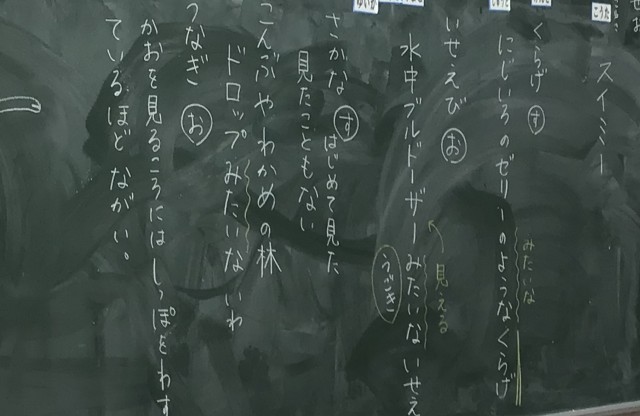 スイミー
くらげ す
にじいろのゼリーのようなくらげ
みたいな
いせえび お
水中ブルドーザーみたいないせえ
見える
うごき
さかな す はじめて見た
見たこともない
こんぶやわかめの林
ドロップみたいないわ
うなぎ お
かおを見るころにはしっぽをわす
ているほどながい。